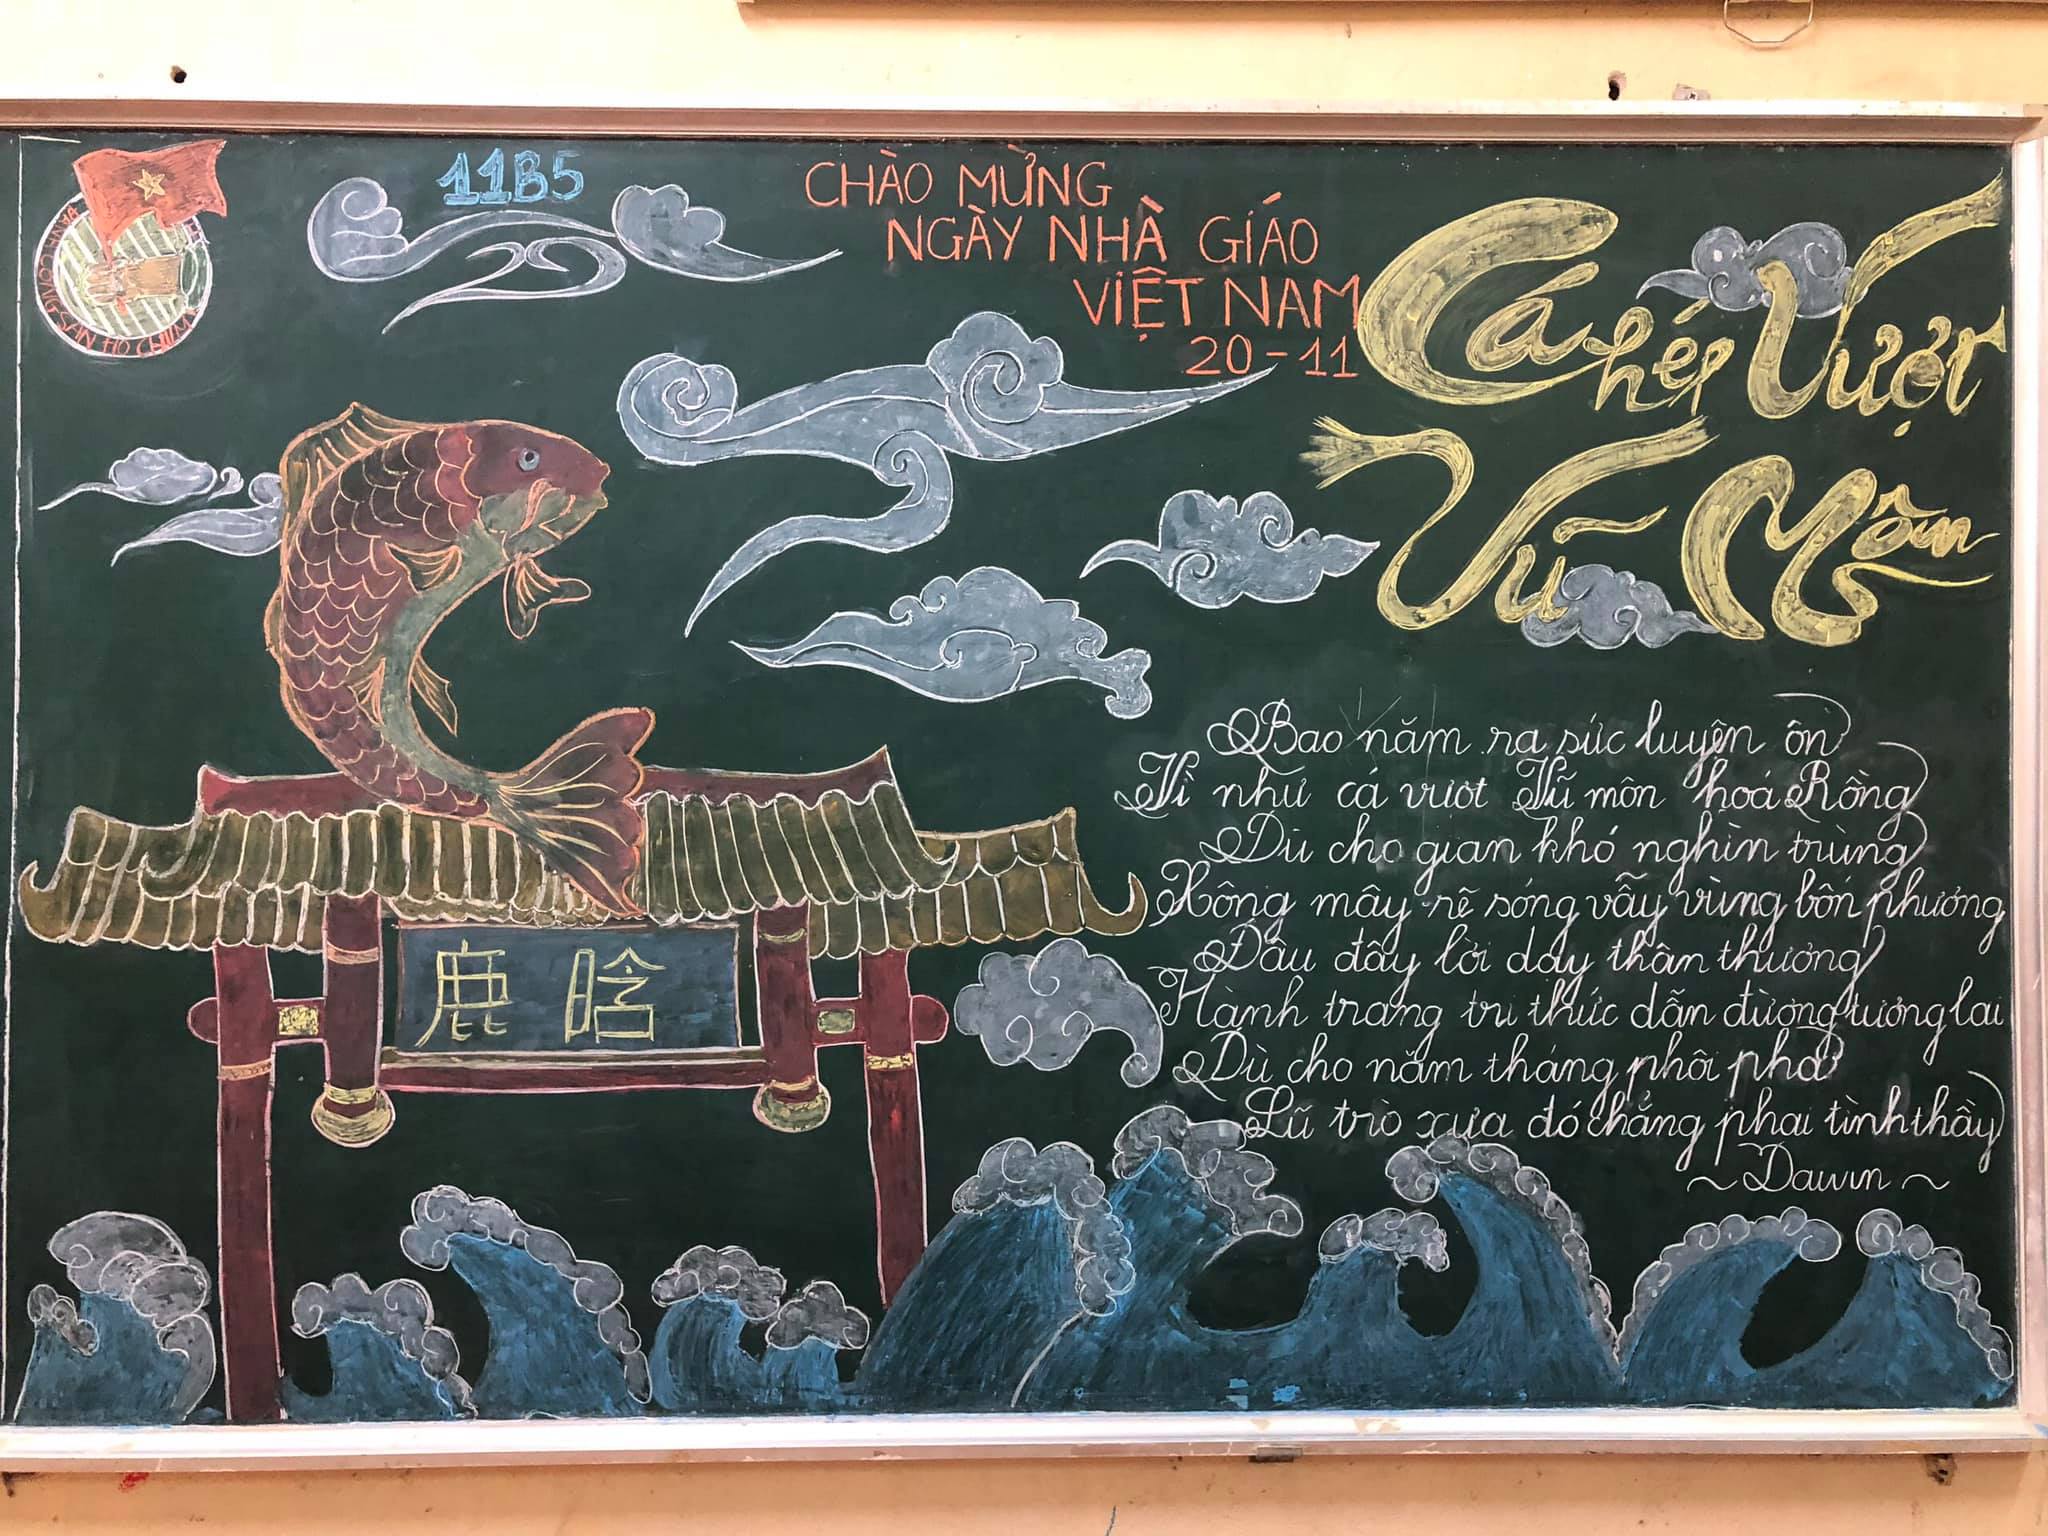 11B5
CHÀO MỪNG
NGÀY NHÀ GIÁO
VIỆT NAM
20-11
Cá Chép Vượt
Vũ Môn
Bao năm ra sức luyện ôn
Vì như cá vượt Vũ môn hoá Rồng
Dù cho gian khó nghìn trùng
Xông mây rẽ sóng vẫy vùng bốn phương
Đâu đây lời dạy thân thương
Hành trang tri thức dẫn đường tương lai
Dù cho năm tháng phôi pha
Lũ trò xưa đó chẳng phai tình thầy
~Dawin~
鹿 晗